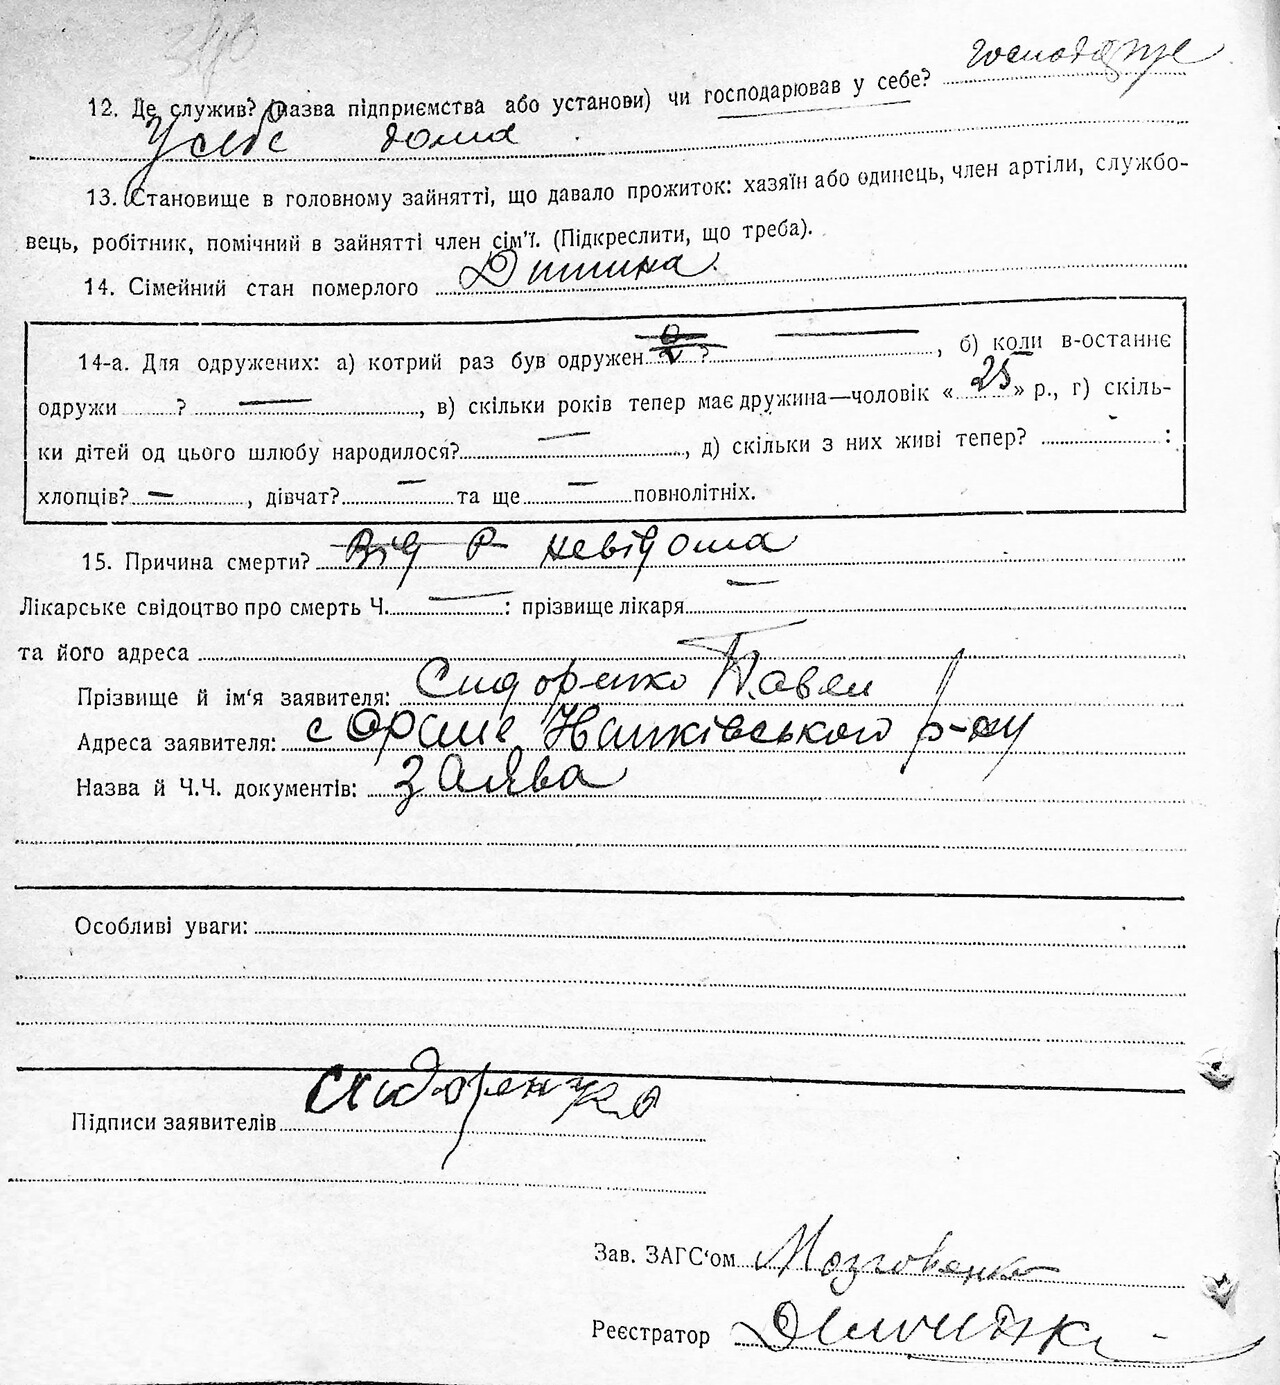 340
господарує
12. Де служив? (назва підприємства або установи) чи господарював у себе?
У себе дома
13. Становище в головному зайнятті, що давало прожиток: хазяїн або одинець, член артіли, службо-
вець, робітник, помічний в зайнятті член сім'ї. (Підкреслити, що треба).
14. Сімейний стан померлого Дитина.
14-а. Для одружених: а) котрий раз був одружен ? —, б) коли в-останнє
одружи ? —, в) скільки років тепер має дружина—чоловік « 25 » р., г) скіль-
ки дітей од цього шлюбу народилося? —, д) скільки з них живі тепер? :
хлопців? —, дівчат? — та ще — повнолітніх.
15. Причина смерти? Від Р невідома
Лікарське свідоцтво про смерть Ч. — : прізвище лікаря —
та його адреса —
Прізвище й ім'я заявителя: Сидоренко Павел
Адреса заявителя: с Ораше Няньківського р-ну
Назва й Ч.Ч. документів: заява
Особливі уваги:
Підписи заявителів Сидоренко
Зав. ЗАГС'ом Мозговенко
Реєстратор